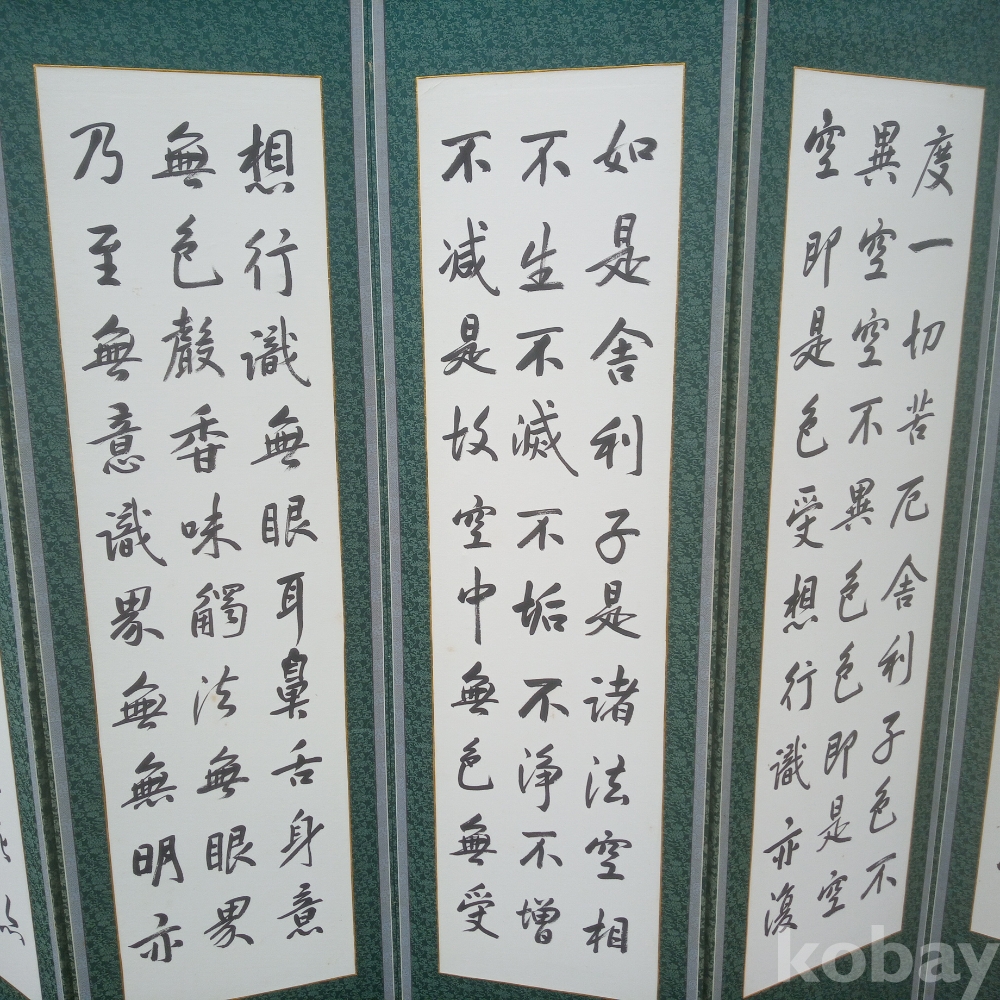 度一切苦厄舍利子色不
異空空不異色色即是空
空即是色受想行識亦復
如是舍利子是諸法空相
不生不滅不垢不淨不增
不減是故空中無色無受
想行識無眼耳鼻舌身意
無色聲香味觸法無眼界
乃至無意識界無無明亦
kobay